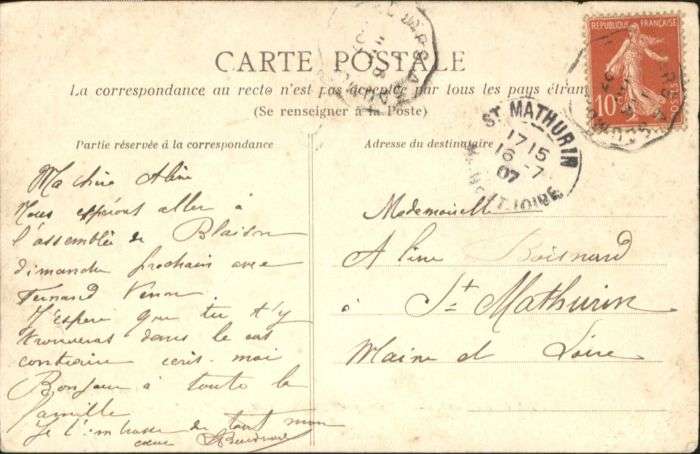 CARTE POSTALE
La correspondance au recto n'est pas acceptée par tous les pays étran
(Se renseigner à la Poste)
Partie réservée à la correspondance
Ma chère Aline
Nous espérons aller à
l'assemblée de Blaison
dimanche prochain avec
Fernand
J'espère que tu t'y
trouveras dans le cas
contraire écris-moi
Bonjour à toute la
famille
Je t'embrasse de tout mon
cœur
Adresse du destinataire
Mademoiselle
Aline Boisnard
à St Mathurin
Maine et Loire
ST MATHURIN
17 15
16 -7
07
ET-LOIRE
REPUBLIQUE FRANÇAISE
10